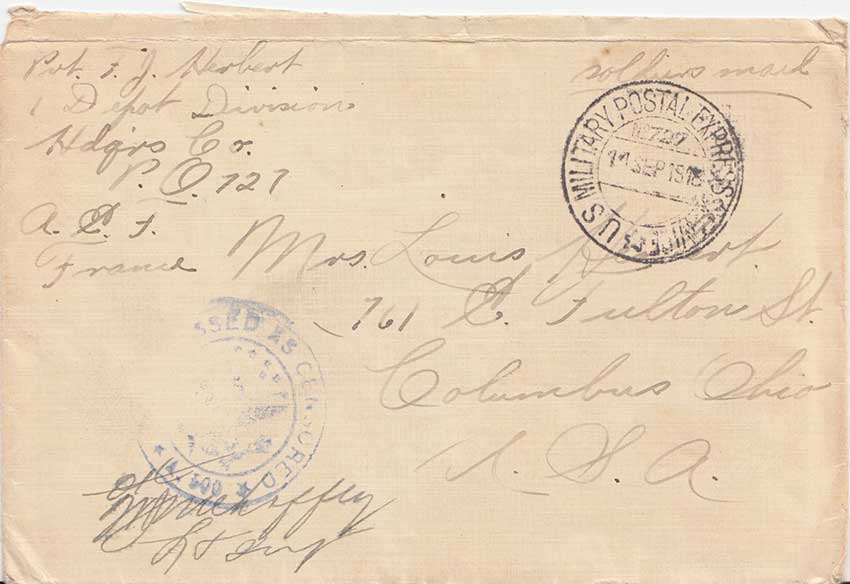 Pvt. F. J. Herbert
1 Depot Division
Hdqrs Co.
P. O. 727
A. E. F.
France
soldiers mail
U S MILITARY POSTAL EXPRESS
No 727
11 SEP 1918
Mrs. Louis Herbert
761 E. Fulton St.
Columbus Ohio
U. S. A.
PASSED AS CENSORED